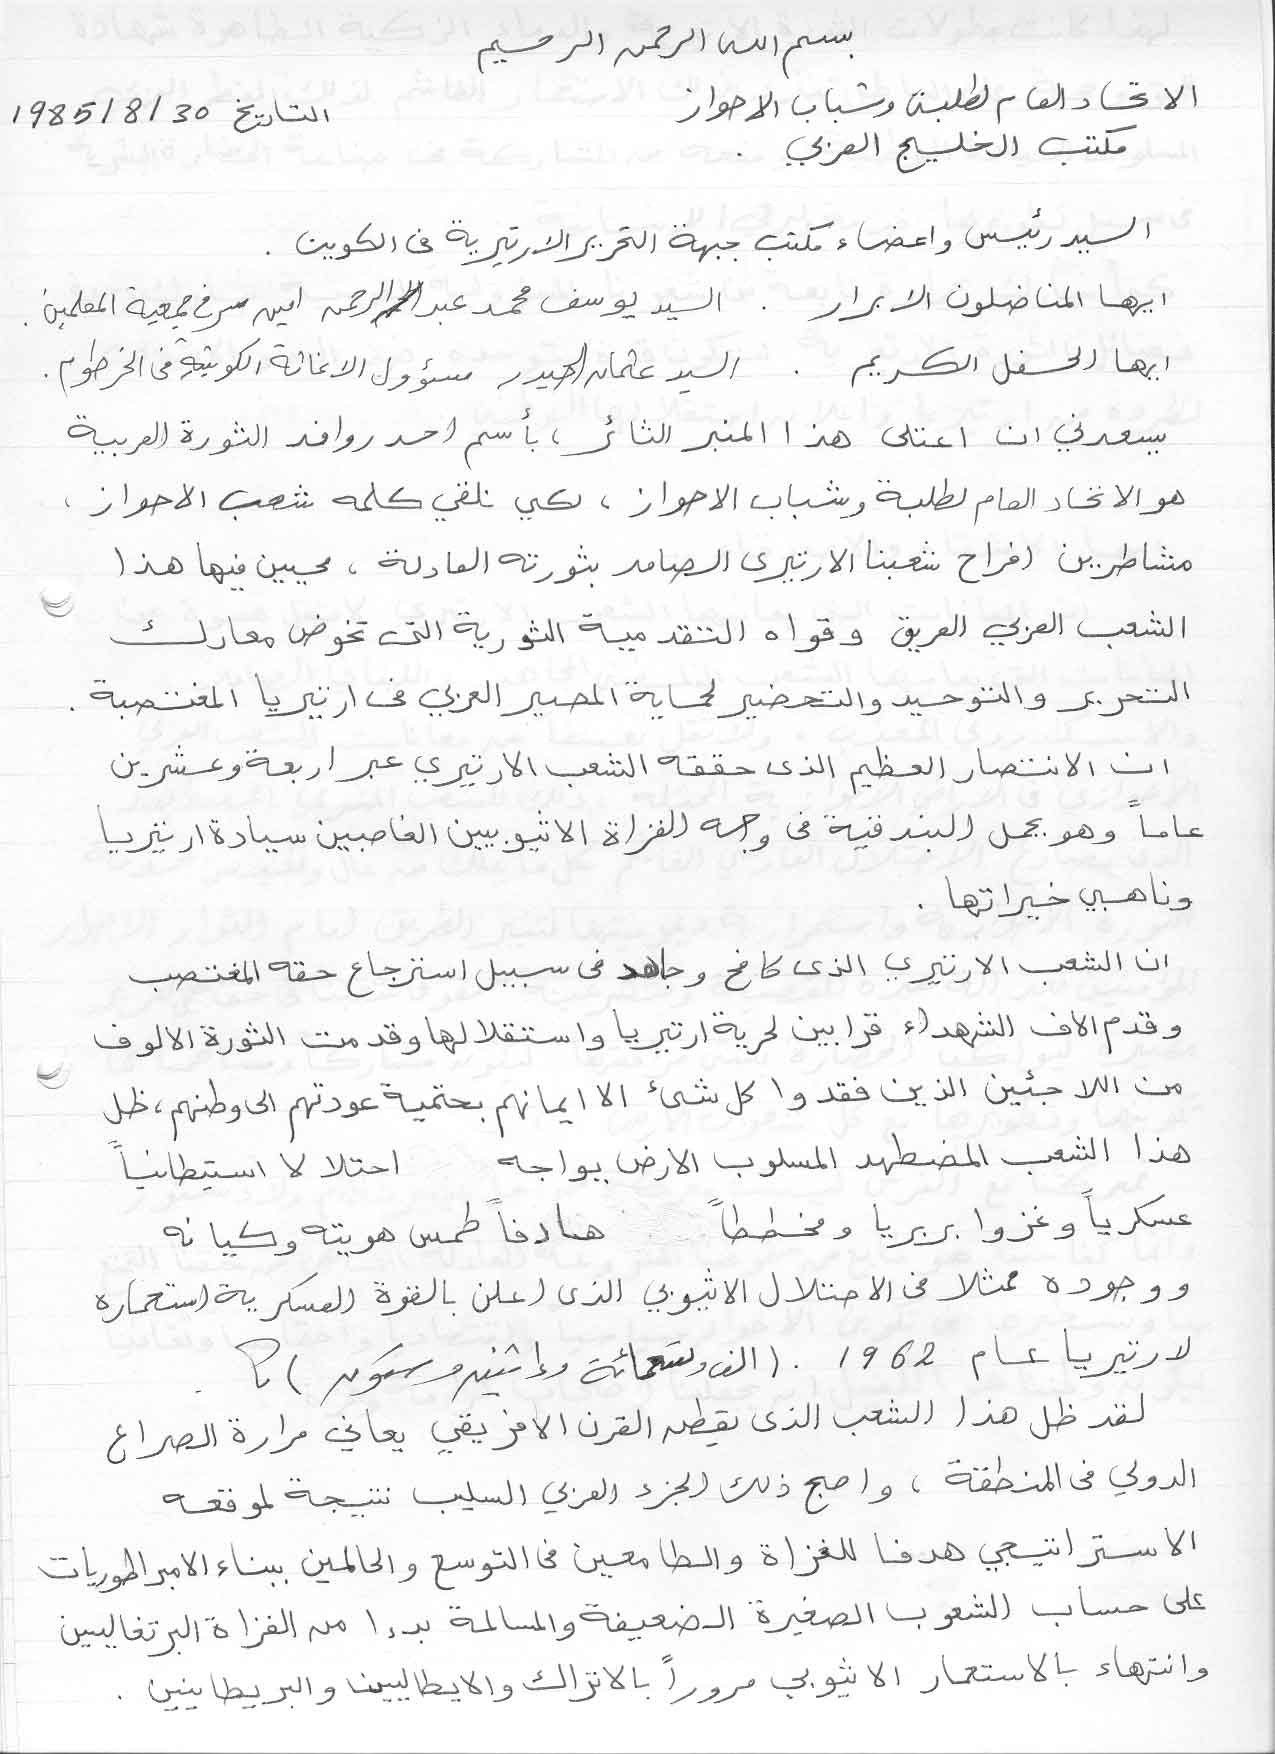 بسم الله الرحمن الرحيم
الاتحاد العام لطلبة وشباب الاحواز
التاريخ 1985/8/30
مكتب الخليج العربي .
السيد رئيس واعضاء مكتب جبهة التحرير الارتيرية فى الكويت .
ايها المناضلون الابرار . السيد يوسف محمد عبد الرحمن امين سر جمعية المعلمين .
ايها الحفل الكريم . السيد عثمان الحيدر مسؤول الاغاثة الكويتية فى الخرطوم .
يسعدني ان اعتلى هذا المنبر الثائر ، بأسم احد روافد الثورة العربية
هو الاتحاد العام لطلبة وشباب الاحواز ، لكي نلقي كلمه شعب الاحواز ،
مشاطرين افراح شعبنا الارتيرى الصامد بثورته العادلة ، محيين فيها هذا
الشعب العربي العريق وقواه التقدمية الثورية التى تخوض معارك
التحرير والتوحيد والتحضير لحماية المصير العربي فى ارتيريا المغتصبة .
ان الانتصار العظيم الذى حققه الشعب الارتيري عبر اربعة وعشرين
عاماً وهو يحمل البندقية فى وجه الغزاة الاثيوبيين الغاصبين سيادة ارتيريا
وناهبي خيراتها .
ان الشعب الارتيري الذى كافح وجاهد فى سبيل استرجاع حقه المغتصب
وقدم الاف الشهداء قرابين لحرية ارتيريا واستقلالها وقدمت الثورة الالوف
من اللاجئين الذين فقدوا كل شئ الا ايمانهم بحتمية عودتهم الى وطنهم ، ظل
هذا الشعب المضطهد المسلوب الارض يواجه احتلالا استيطانياً
عسكرياً وغزوا بربريا ومخططاً هادفاً طمس هويته وكيانه
ووجوده ممثلا فى الاحتلال الاثيوبي الذى اعلن بالقوة العسكرية استعماره
لارتيريا عام 1962 . ( الف وتسعمائة واثنين وستون )
لقد ظل هذا الشعب الذى يقطن القرن الافريقي يعاني مرارة الصراع
الدولي فى المنطقة ، واصبح ذلك الجزء العربي السليب نتيجة لموقعه
الاستراتيجي هدفا للغزاة والطامعين فى التوسع والحالمين ببناء الامبراطوريات
على حساب الشعوب الصغيرة الضعيفة والمسالمة بدءا من الغزاة البرتغاليين
وانتهاء بالاستعمار الاثيوبي مروراً بالاتراك والايطاليين والبريطانيين .